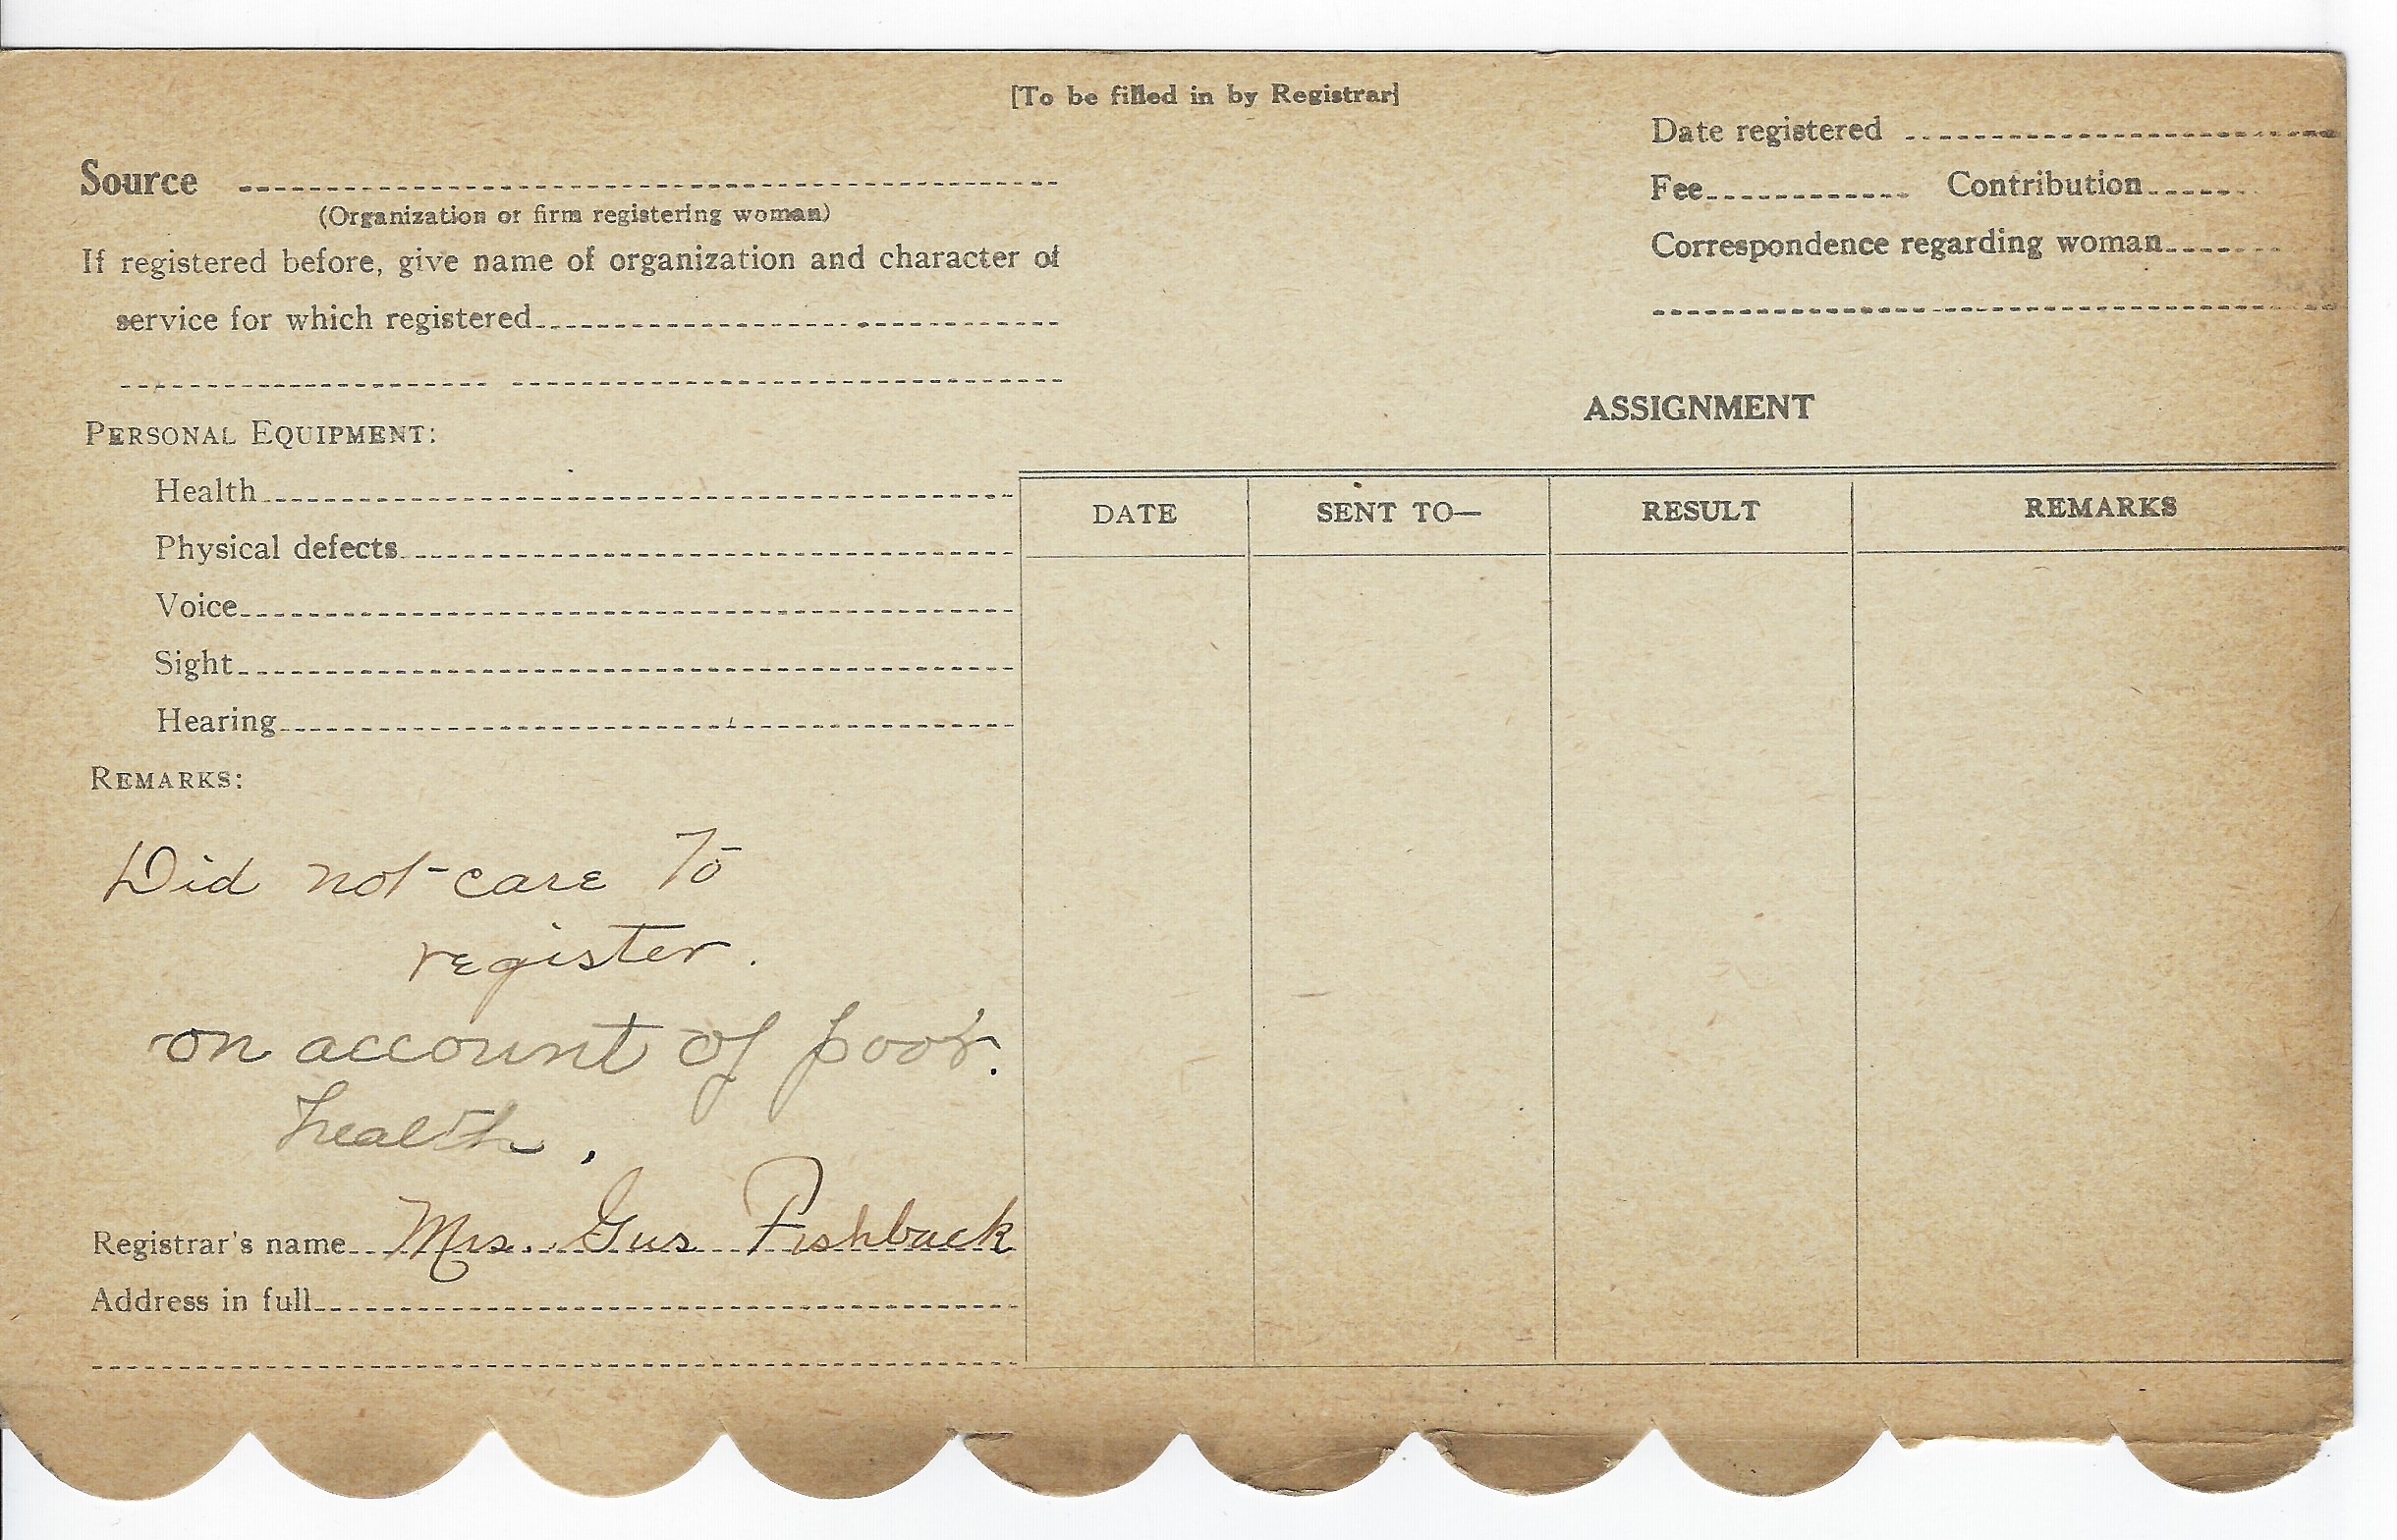 [To be filled in by Registrar]
Date registered
Source
Fee Contribution
(Organization or firm registering woman)
Correspondence regarding woman
If registered before, give name of organization and character of
service for which registered
ASSIGNMENT
PERSONAL EQUIPMENT:
Health
DATE SENT TO— RESULT REMARKS
Physical defects
Voice
Sight
Hearing
REMARKS:
Did not care to
register.
on account of poor.
health.
Registrar's name Mrs. Gus Fishback
Address in full